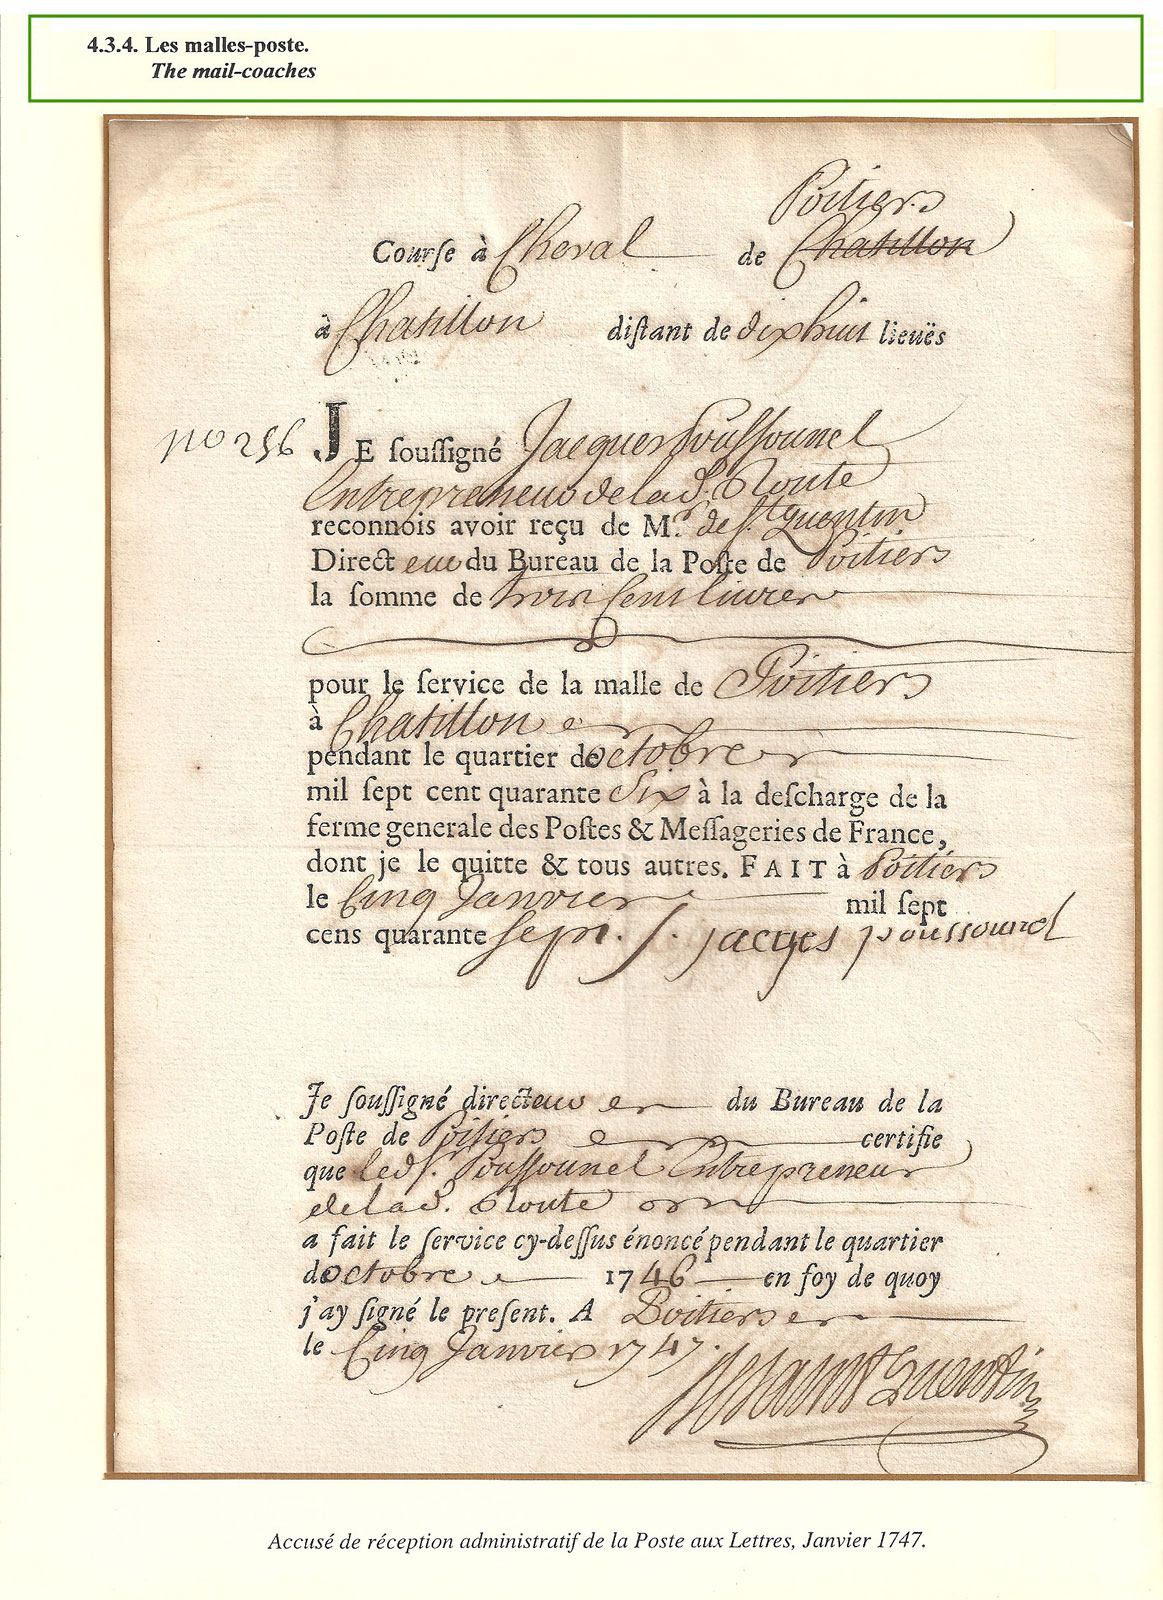 4.3.4. Les malles-poste.
The mail-coaches
Poitiers
Courſe à Cheval de Chatillon
à Chatillon diſtant de dixhuit lieuës
no 256 JE ſouſſigné Jacques Poussounel
Entrepreneur de lad. Route
reconnois avoir reçu de M.r de St Quentin
Direct eur du Bureau de la Poſte de Poitiers
la ſomme de trois Cent livres
pour le ſervice de la malle de Poitiers
à Chatillon
pendant le quartier doctobre
mil ſept cent quarante Six à la deſcharge de la
ferme generale des Poſtes & Meſſageries de France,
dont je le quitte & tous autres. FAIT à Poitiers
le Cinq Janvier mil ſept
cens quarante sept. J. jacqes poussounel
Je ſouſſigné directeur du Bureau de la
Poſte de Poitiers certifie
que led s. Poussounel Entrepreneur
de lad. Route
a fait le ſervice cy-deſſus énoncé pendant le quartier
doctobre 1746 en foy de quoy
j'ay ſigné le preſent. A Poitiers
le Cinq Janvier 1747.
De Saint Quentin
Accusé de réception administratif de la Poste aux Lettres, Janvier 1747.